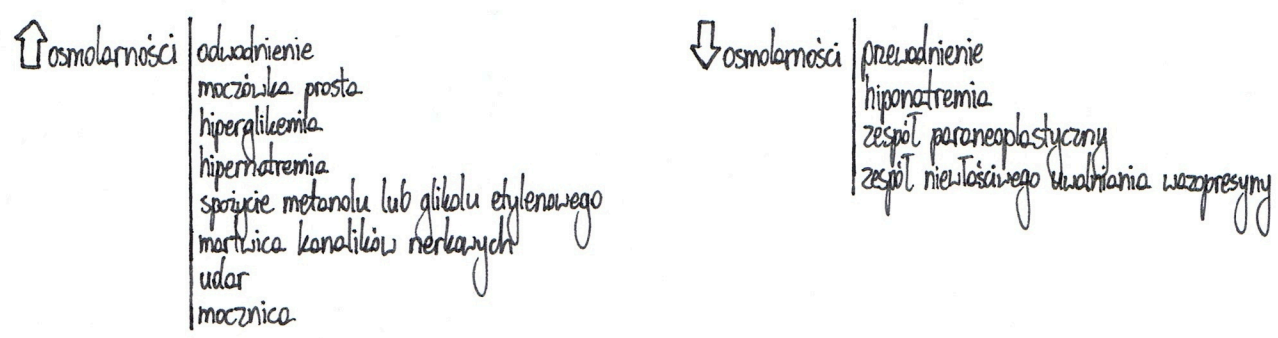 osmolarności
odwodnienie
moczówka prosta
hiperglikemia
hipernatremia
spożycie metanolu lub glikolu etylenowego
martwica kanalików nerkowych
udar
mocznica
osmolarności
przewodnienie
hiponatremia
zespół paraneoplastyczny
zespół niewłościwego uwalniania wazopresyny